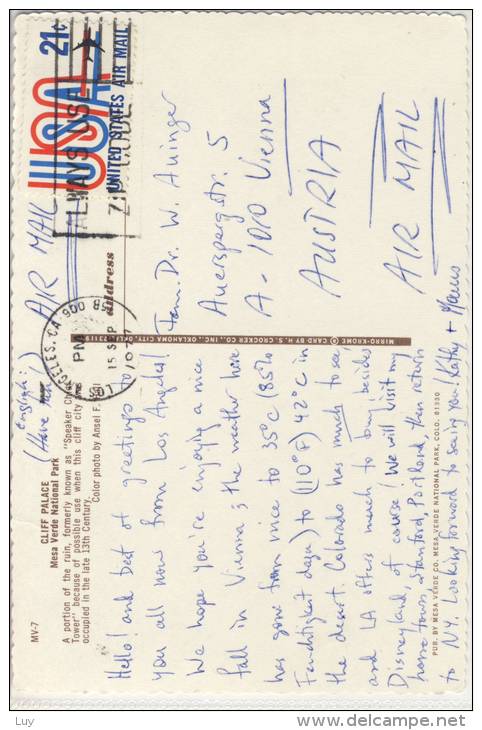 MV-7
CLIFF PALACE
Mesa Verde National Park
A portion of the ruin, formerly known as "Speaker Chief
Tower" because of possible use when this cliff city was
occupied in the late 13th Century.
Color photo by Ansel F.
English:
(Have
AIR MAIL
Hello! and best of greetings to
you all now from Los Angeles!
We hope you're enjoying a nice
fall in Vienna; the weather here
has gone from nice to 35°C (85%
Feuchtigkeit dazu) to (110°F) 42°C in
the desert. Colorado has much to see,
and LA offers much to buy, besides
Disneyland, of course! We will visit my
home town, Stanford, Portland, then return
to NY. Looking forward to seeing you! Kathy +
address
Fam. Dr. W. Aninger
Auerspergstr. 5
A-1010 Vienna
AUSTRIA
AIR MAIL
USA
21¢
UNITED STATES AIR MAIL
ALWAYS USE
CA 900
PM
15 SEP
MIRRO-KROME ® CARD BY H. S. CROCKER CO., INC., OKLAHOMA CITY, OKLA. 73119
PUB. BY MESA VERDE CO. MESA VERDE NATIONAL PARK, COLO. 81330
Luy
www.delcampe.net